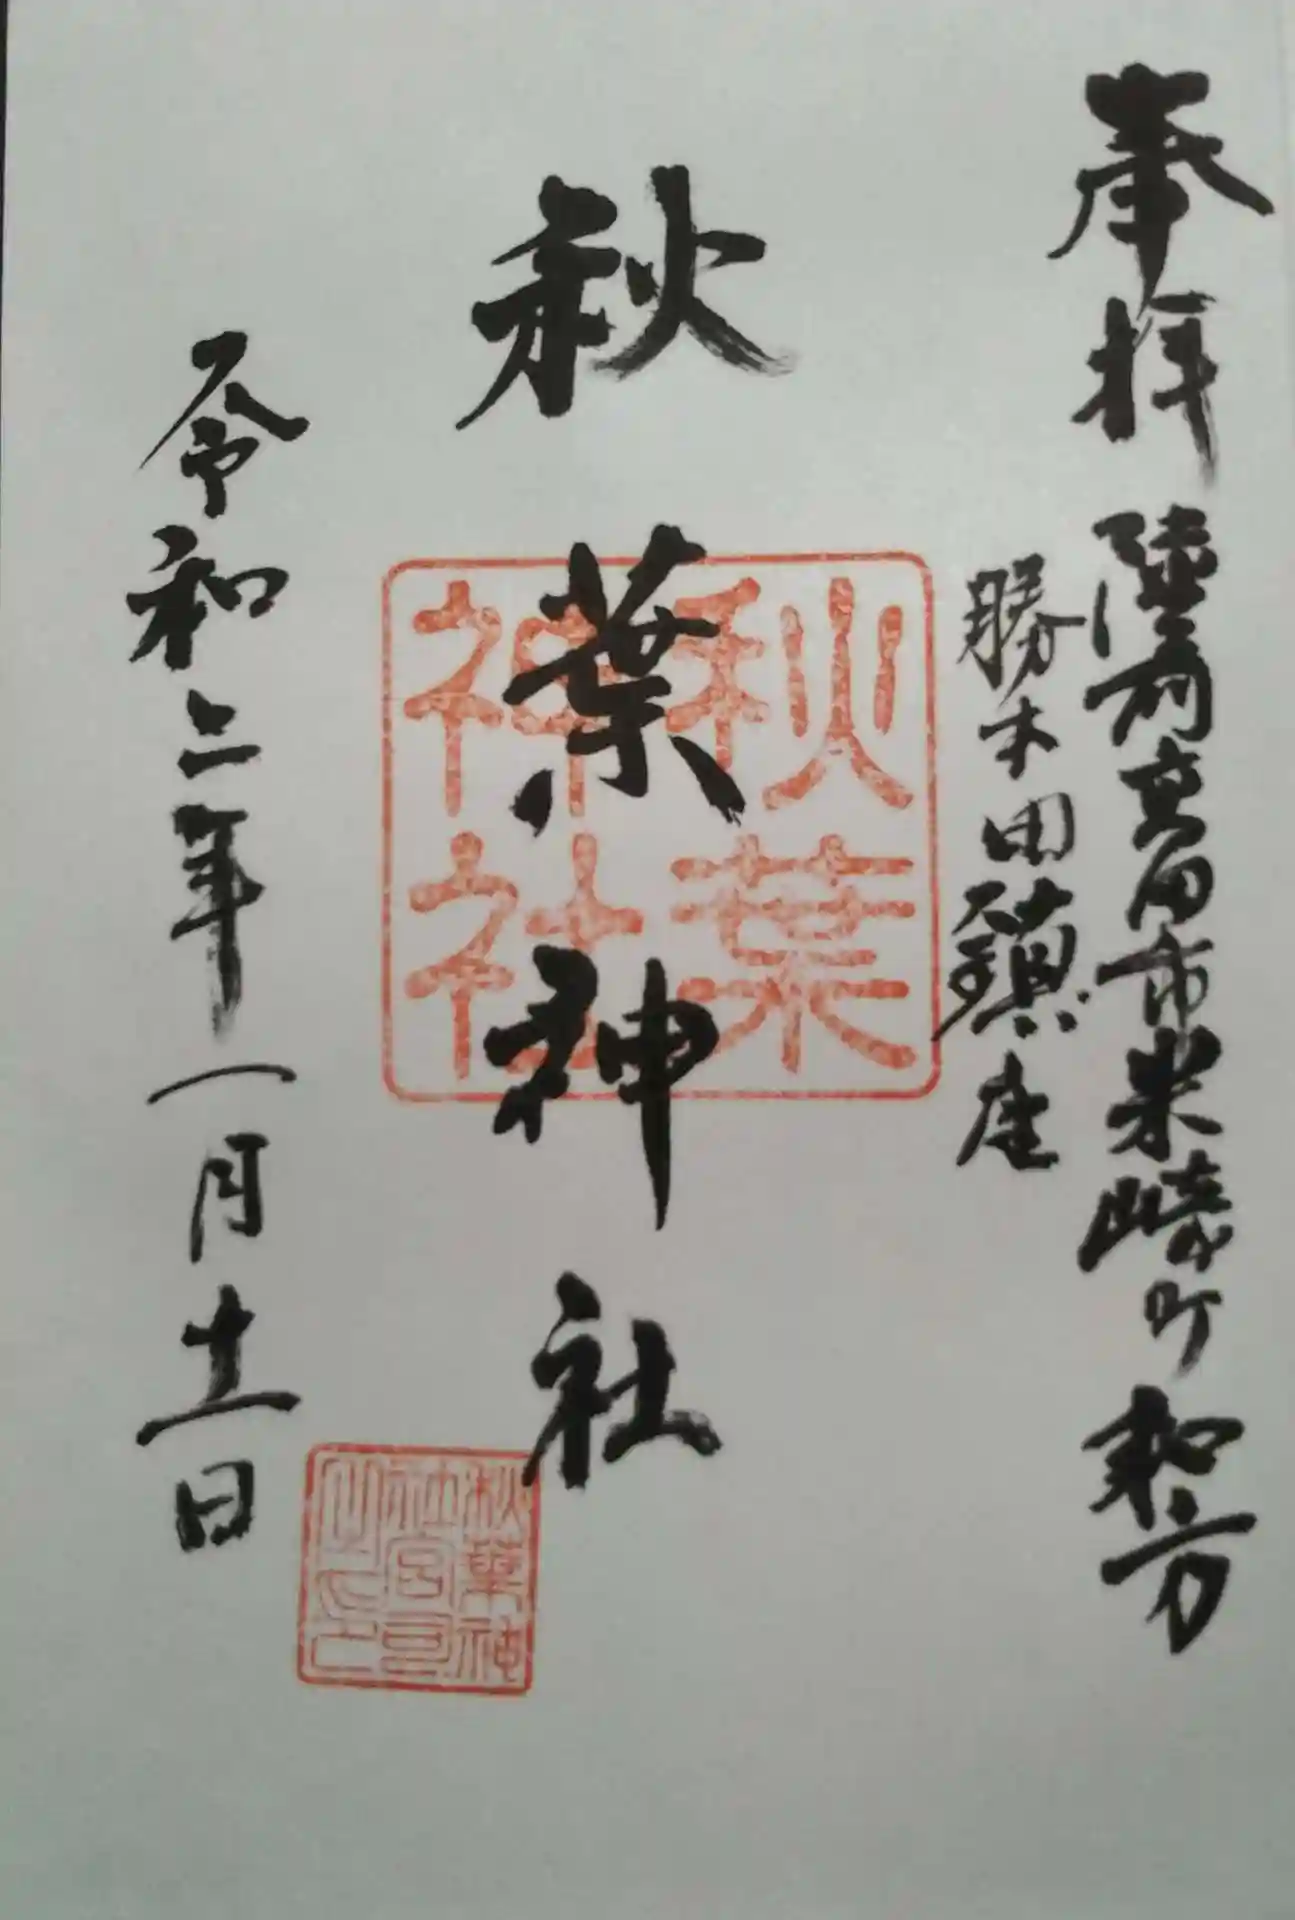 奉拝 陸前高田市米崎町和方
勝木田鎮座
秋葉神社
秋葉神社
令和二年一月十一日
秋葉神社宮司之印